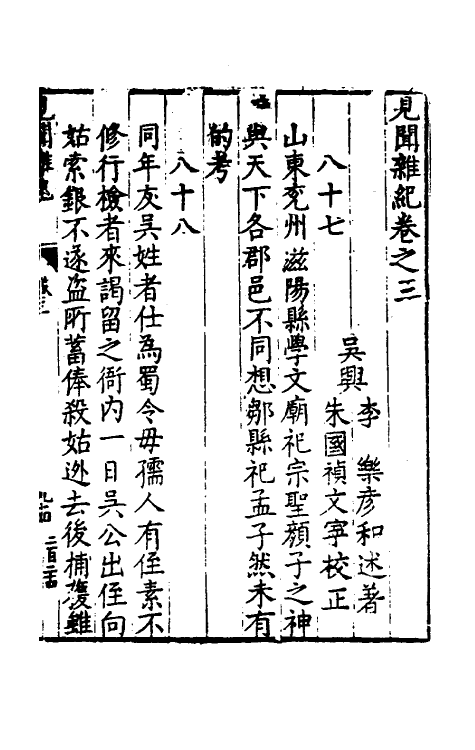 見聞雜紀卷之三
吳興
李　樂彥和述著
朱國禎文寧校正
八十七
山東兗州滋陽縣學文廟祀宗聖顏子之神
與天下各郡邑不同想鄒縣祀孟子然未有
的考
八十八
同年友吳姓者仕爲蜀令毋孺人有侄素不
修行檢者來謁留之衙内一日吳公出侄向
姑索銀不遂盜所蓄俸殺姑逊去後捕獲雖
見聞雜紀
卷三